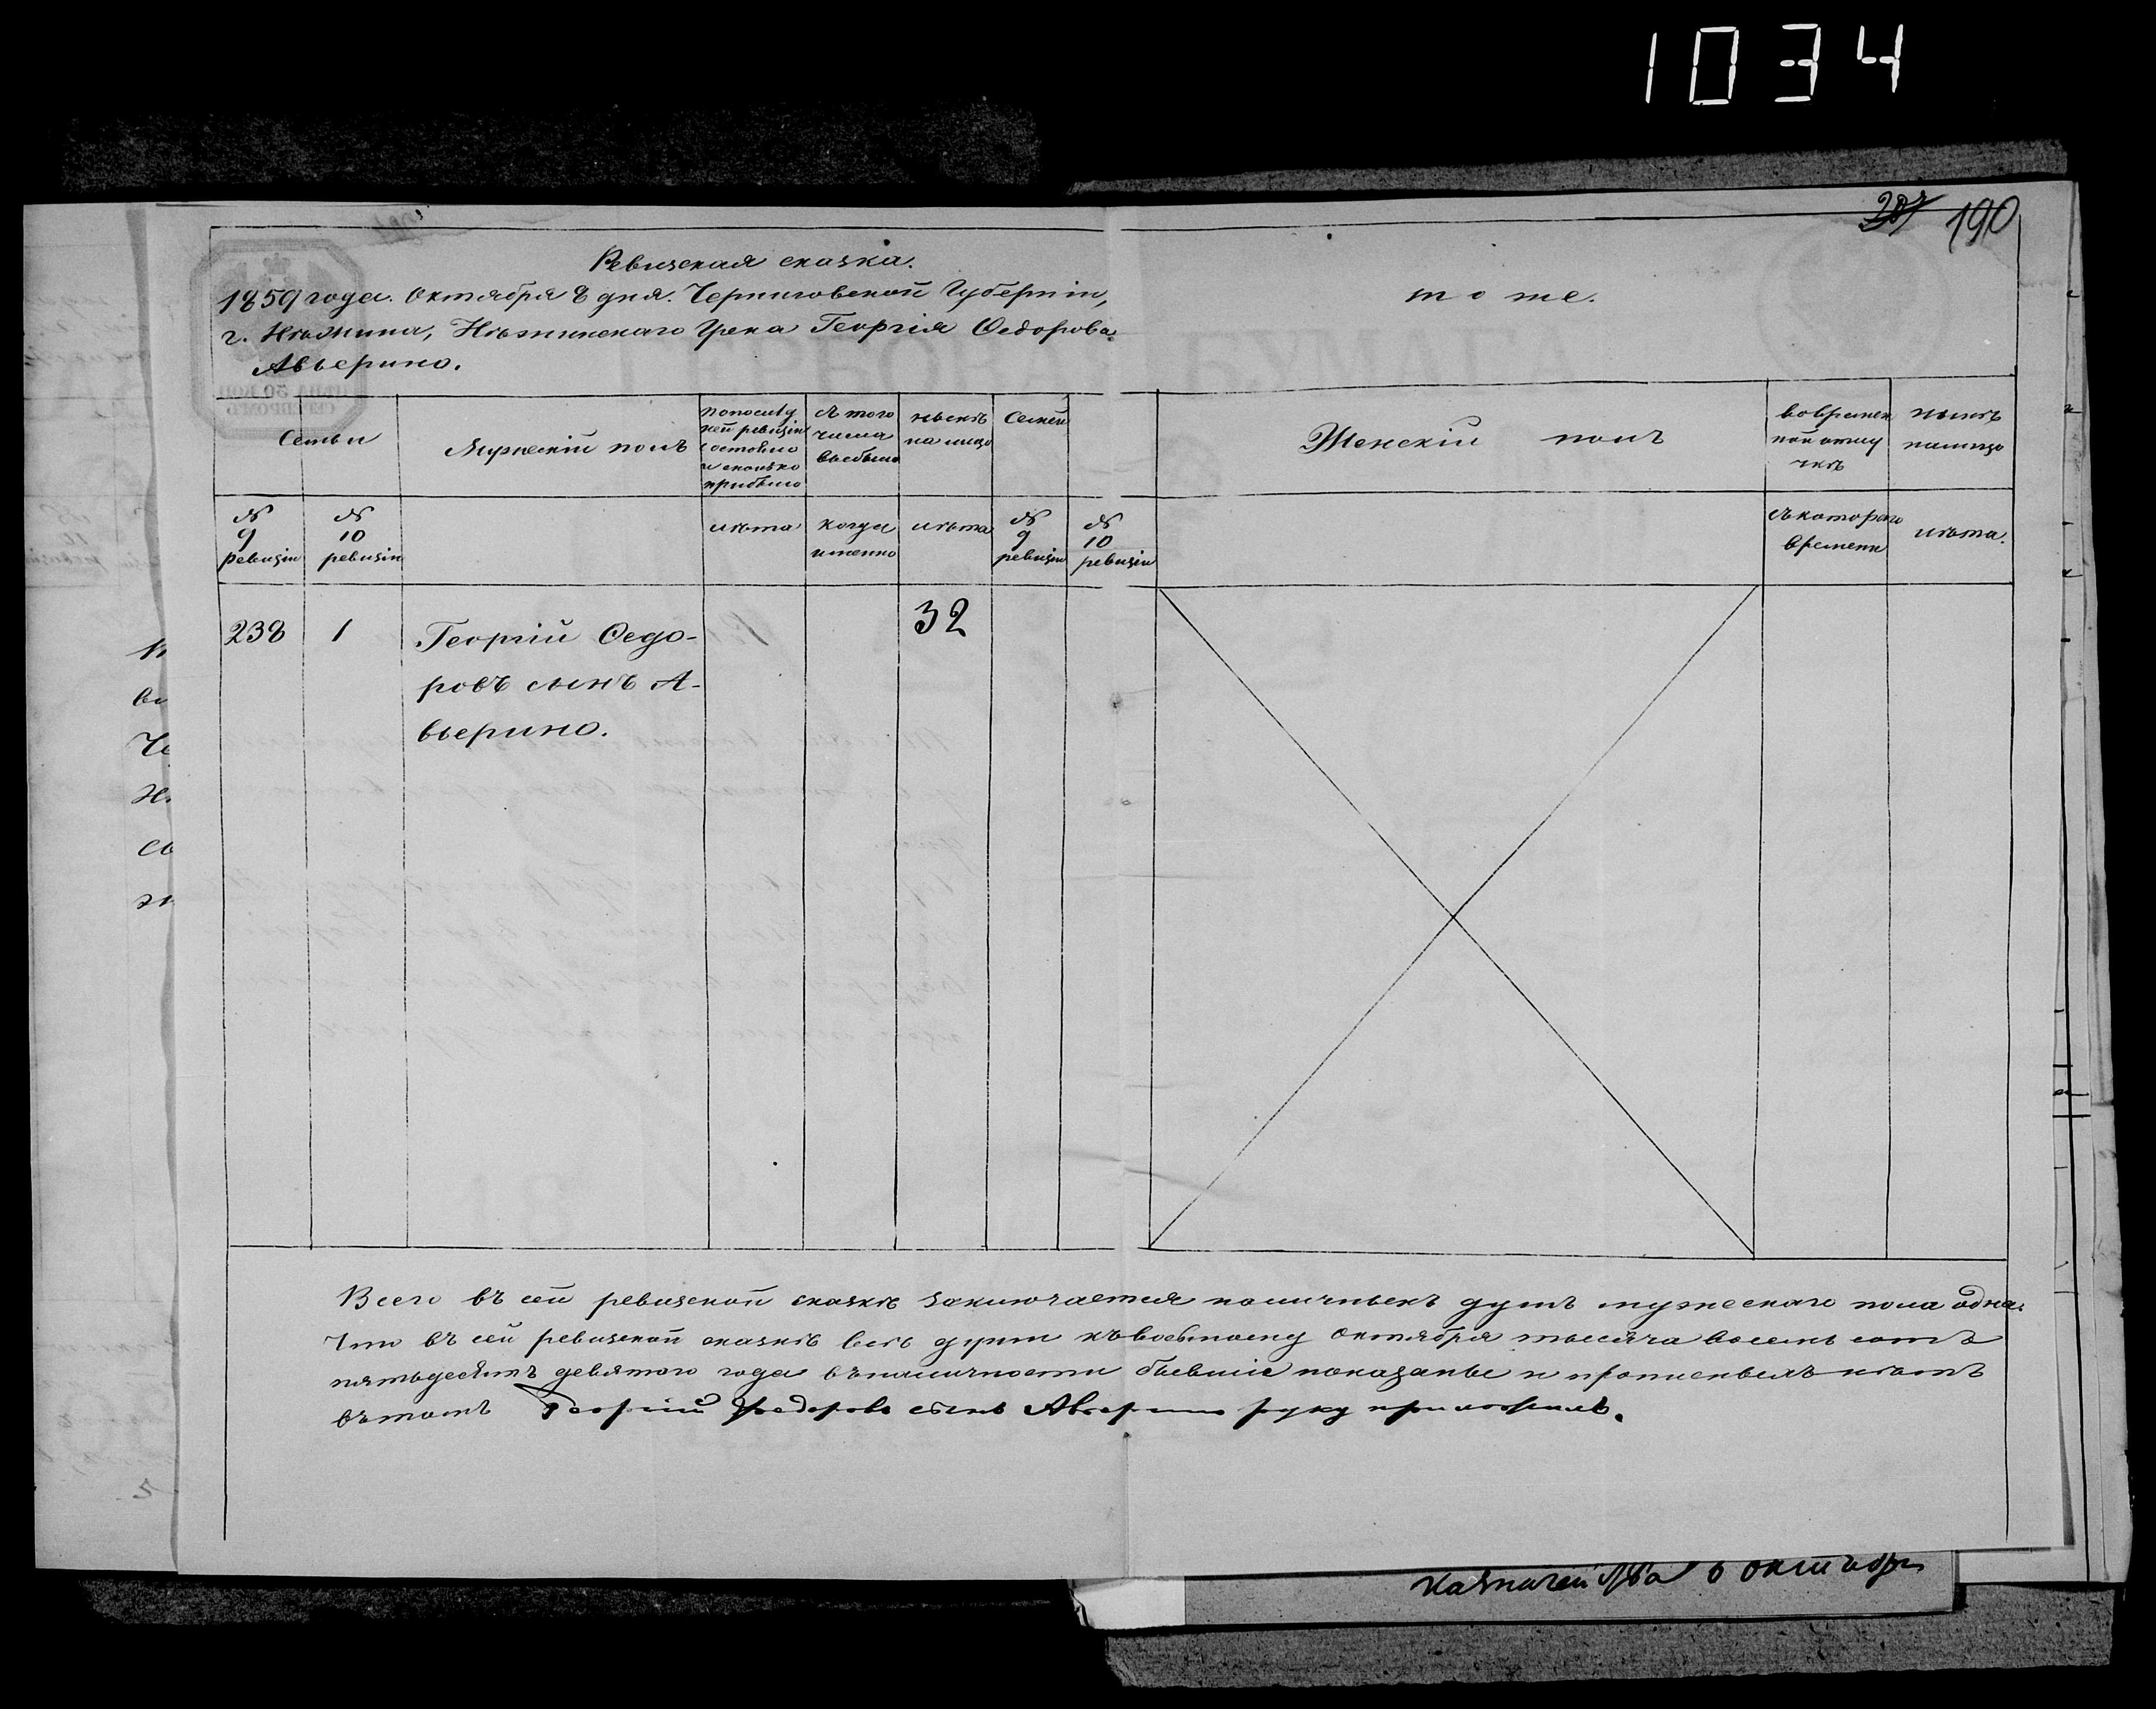 1034
207 190
Ревизская сказка.
1859 года. Октября 8 дня. Черниговской Губерніи,
г. Нѣжина, Нѣжинскаго Грека Георгія Ѳедорова
Авьерино.
тоже.
ЦѢНА 30 КОП.
СЕРЕБРОМЪ
Семьи
Мужескій полъ
по послѣд
ней ревизіи
состояло
и сколько
прибыло
Съ того
числа
выбыло
нынѣ
на лицо
Семьи
Женскій полъ
во времен
ной отлу
чкѣ
нынѣ
налицо
№
9
ревизіи
№
10
ревизіи
лѣта
когда
именно
лѣта
№
9
ревизіи
№
10
ревизіи
съ котораго
времени
лѣта.
238 1 Георгій Ѳедо-
ровъ сынъ А-
вьерино.
32
Всего въ сей ревизской сказкѣ заключается наличныхъ душъ мужескаго пола одна.
Что въ сей ревизской сказкѣ всѣ души къ восьмому Октября тысяча восемь сотъ
пятьдесятъ девятого года въ наличности бывшіе показаны и прописныхъ нѣтъ
въ томъ Георгій Федоровъ сынъ Авьерино руку приложилъ.
Казначейства 6 октября